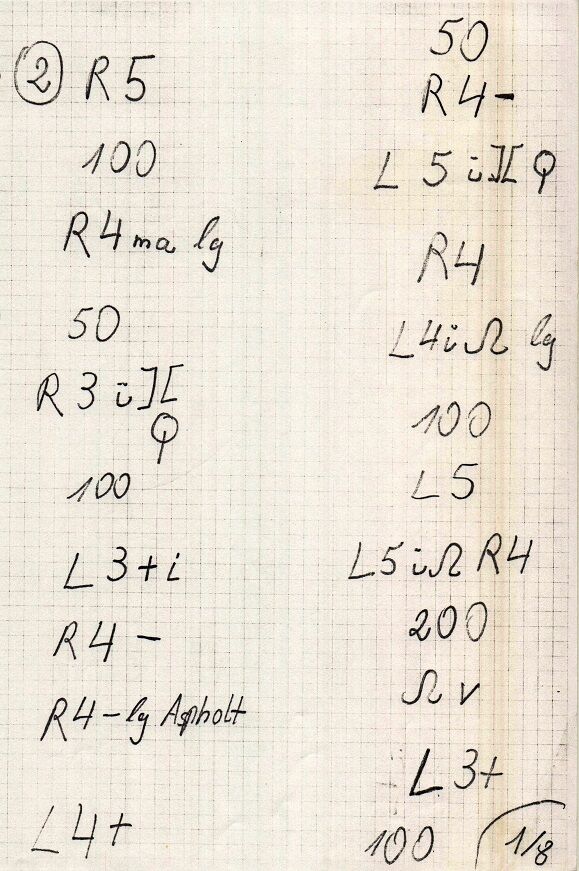 ② R5
100
R4 ma lg
50
R3 ü ][
Q
100
L3+i
R4-
R4-lg Aspholt
L4+
50
R4-
L5 ü ][ Q
R4
L4 i Ω lg
100
L5
L5 ü Ω R4
200
Ω v
L3+
100
1/8